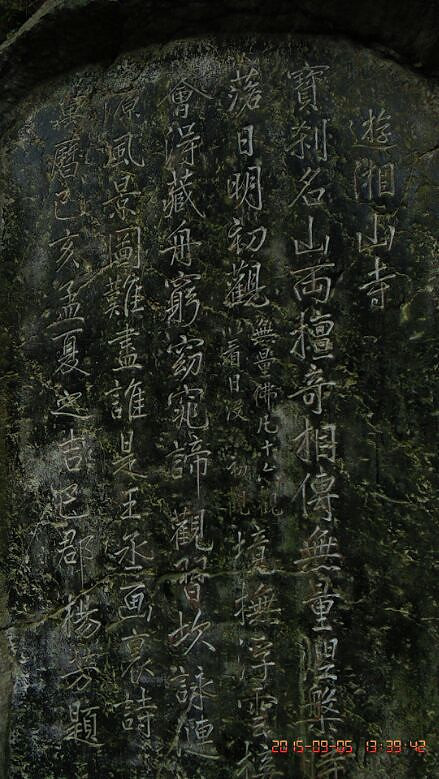 遊湘山寺
寶刹名山兩擅奇相傳無量
落日明初觀
無量佛凡十六觀
看日没 初觀
境撫浮雲
會得藏舟窮窈窕諦觀習坎詠
源風景圖難盡誰是王丞畫裏詩
萬曆己亥孟夏之吉巴郡楊芳題
2015-09-05 13:39:42